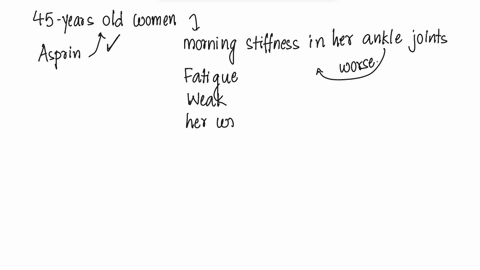 45-years old women
Asprin ✓
morning stiffness in her ankle joints
worse.
Fatigue
Weak
her us